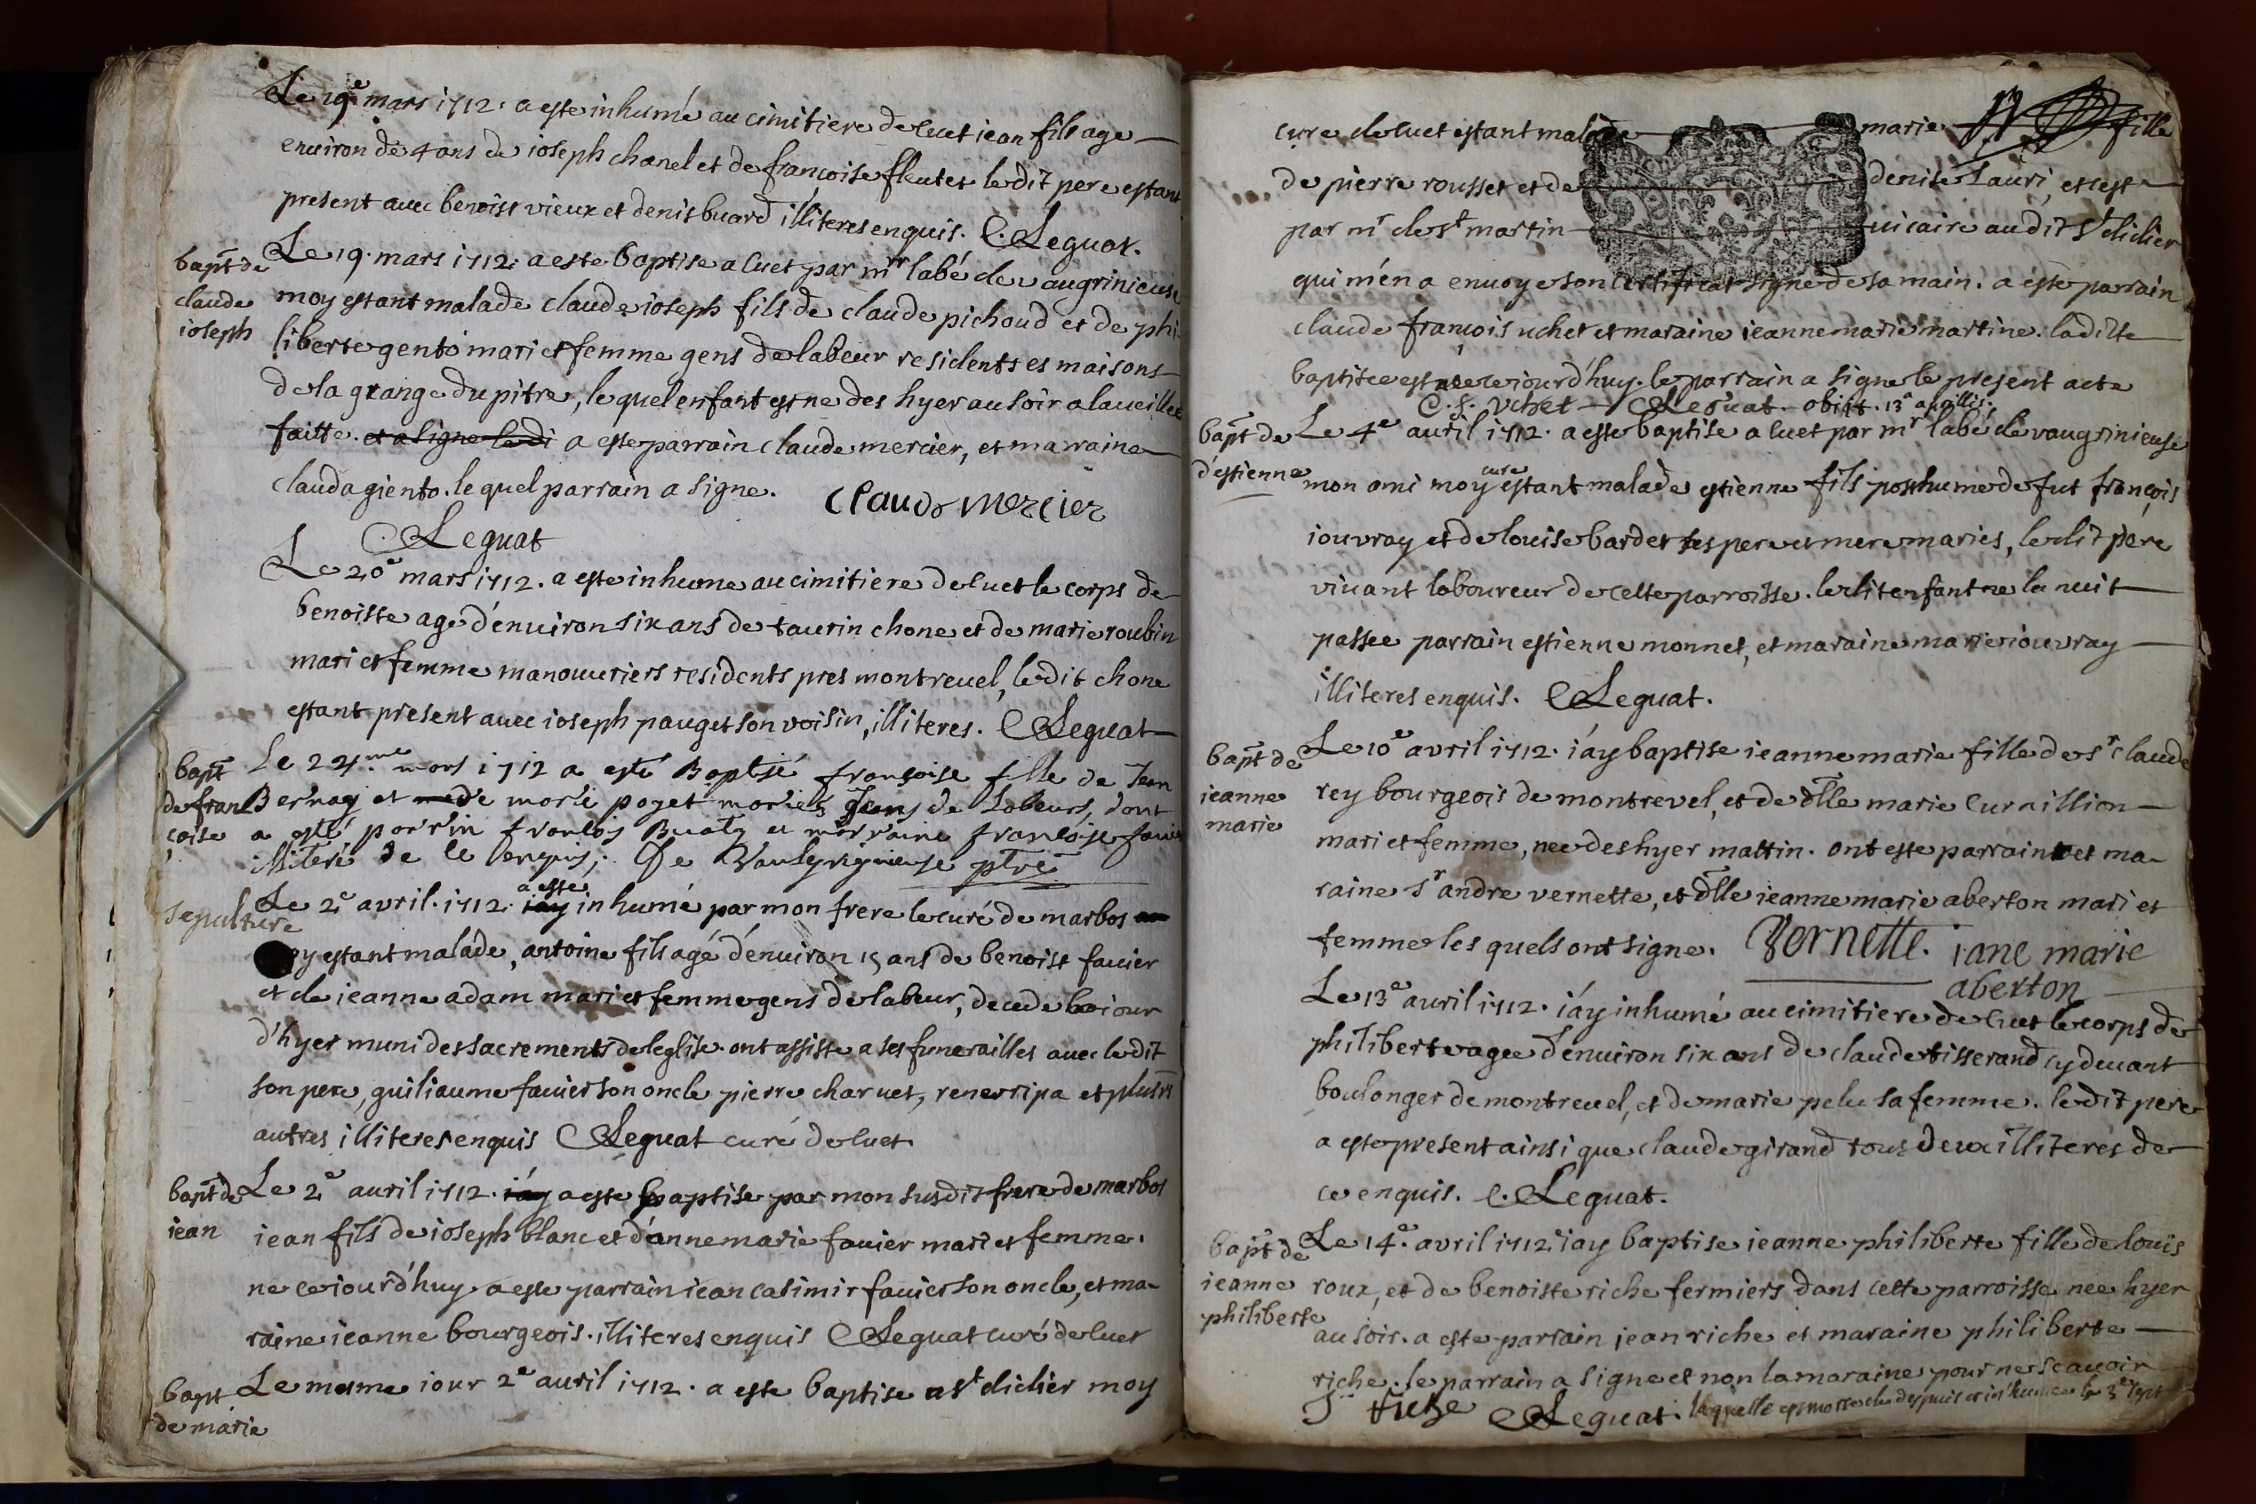 Le 19e mars 1712. a este inhumé au cimitiere de cuet jean fils age
environ de 4 ans de joseph chanel et de francoise fleutet ledit pere estant
present avec benoist vieux et denis buard illiteres enquis. C. Leguat.
bapt de
claude
ioseph
Le 19. mars 1712. a este baptise a cuet par mr labé de vaugrinieuse
moy estant malade claude ioseph fils de claude pichoud et de phi-
liberte gento mari et femme gens de labeur residents es maisons
de la grange du pitre, le quel enfant est ne des hyer au soir a la veillee
faitte. et a signe ledi a este parrain claude mercier, et marraine
clauda giento. le quel parrain a signe. Claude Mercier
C. Leguat
Le 20e mars 1712. a este inhume au cimitiere de cuet le corps de
benoiste age d'environ six ans de taurin chone et de marie roubin
mari et femme manouvriers residents pres montrevel, ledit chone
estant present avec ioseph pauget son voisin, illiteres. C Leguat
bapt
de fran
coise
Le 24me mars 1712 a esté Baptisé françoise fille de Jean
Bernay et de marie poget mariés Gens de Labeurs, dont
a esté parrin francois Buaty et marraine francoise favie
illiteré de ce enquis, De Vaulgrignieuse ptre
sepulture
Le 2e avril. 1712. iay a este inhumé par mon frere le curé de marbos
moy estant malade, antoine fils agé d'environ 15 ans de benoist favier
et de jeanne adam mari et femme gens de labeur, decede le jour
d'hyer muni des sacrements de leglise. ont assiste a ses funerailles avec ledit
son pere, guiliaume favier son oncle pierre charvet, rene rripa et plusrs
autres illiteres enquis C Leguat curé de cuet
bapt de
iean
Le 2e avril 1712. iáy a este baptise par mon susdit frere de marbos
jean fils de ioseph blanc et d'anne marie favier mari et femme.
ne ce iourd'huy. a este parrain iean casimir favier son oncle, et ma-
raine ieanne bourgeois. illiteres enquis C Leguat curé de cuet
bapt
de marie
Le mesme iour 2e avril 1712. a este baptise a st didier moy
cure de cuet estant malade marie fille
de pierre rousset et de denise lauri, et cest
par mr de st martin vicaire audit st didier
qui m'en a envoye son certificat signé de sa main. a este parrain
claude françois uchet et maraine ieanne marie martine. ladite
baptisee est nee ce iourd'huy. le parrain a signe le present acte
C. f. Vchet C Leguat. obiit. 13a aprillis.
bapt de
d'estienne
Le 4e avril 1712. a este baptise a cuet par mr labé de vaugrinieuse
mon ami moy cure estant malade estienne fils posthume de fut françois
iouvray et de louise bardet ses pere et mere mariés, ledit pere
vivant laboureur de cette parroisse. ledit enfant ne la nuit
passee parrain estienne monnet, et maraine marie iouvray
illiteres enquis. C Leguat.
bapt de
ieanne
marie
Le 10e avril 1712. i'áy baptise ieanne marie fille de sr claude
rey bourgeois de montrevel, et de dlle marie curnillion
mari et femme, nee des hyer mattin. ont este parrain et ma-
raine sr andre vernette, et dlle ieanne marie aberton mari et
femme les quels ont signe. Vernette. iane marie
aberton
Le 13e avril 1712. i'áy inhumé au cimitiere de cuet le corps de
philiberte agee d'environ six ans de claude tisserand cy devant
boulonger de montrevel, et de marie pelu sa femme. ledit pere
a este present ainsi que claude girand tous deux illiteres de
ce enquis. C. Leguat.
bapt de
ieanne
philiberte
Le 14e. avril 1712. iay baptise ieanne philiberte fille de louis
roux, et de benoiste riche fermiers dans cette parroisse nee hyer
au soir. a este parrain jean riche et maraine philiberte
riche. le parrain a signe et non la maraine pour ne scavoir
J riche C Leguat. laquelle est morte despuis et inhumee le 3e sept